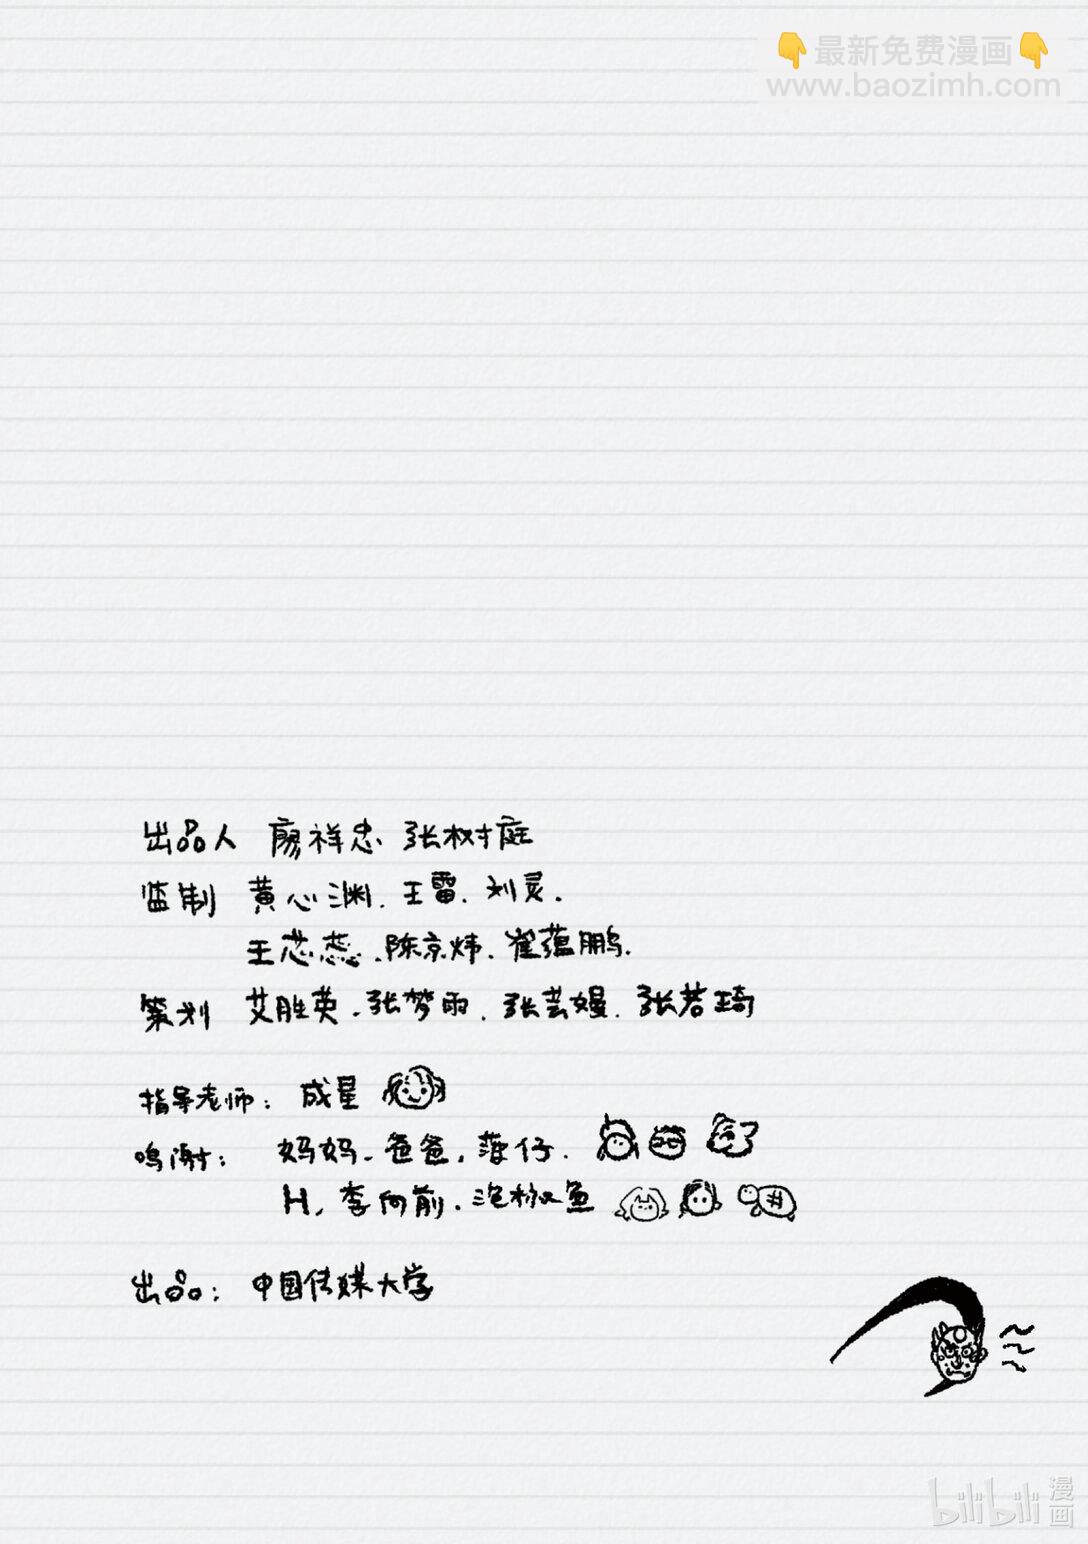 👇最新免费漫画👇
www.baozimh.com
出品人 廖祥忠 张树庭
监制 黄心渊.王雷.刘灵.
王芯蕊.陈京炜.崔蕴鹏.
策划 艾胜英.张梦雨.张芸嫚.张若琦
指导老师: 成星
鸣谢: 妈妈.爸爸.蓮仔.
H,李向前.泡椒鱼
出品: 中国传媒大学
bilibili漫画